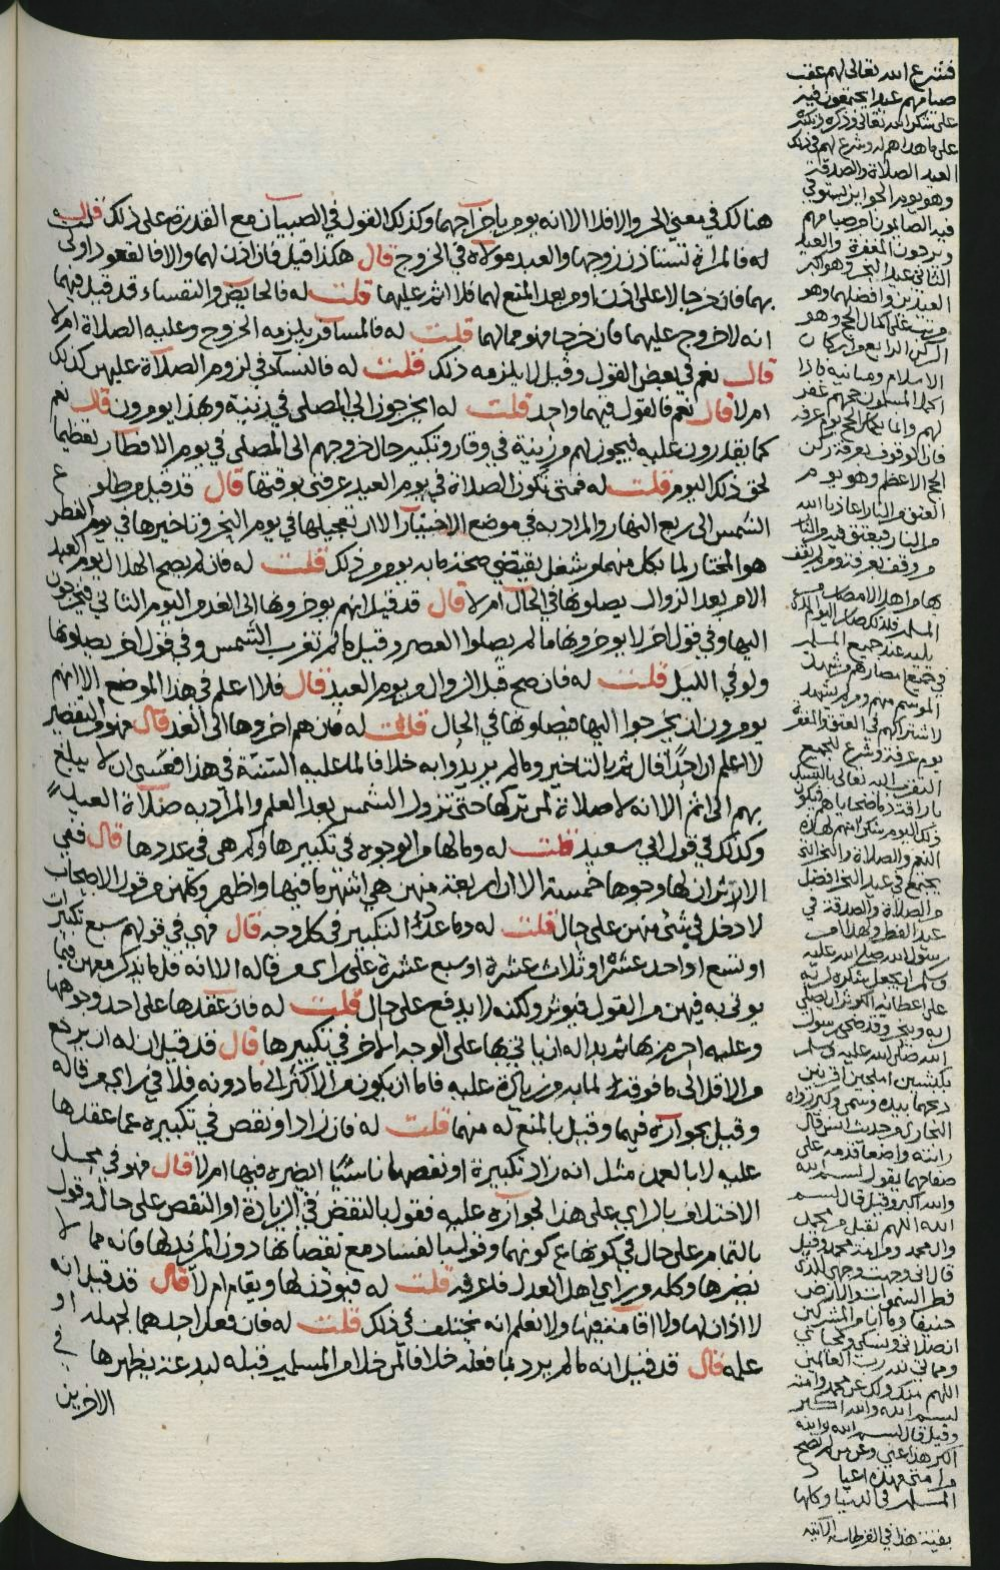 هنالك في معنى الحر والا فلا الا انه يومر باخراجهما وكذلك القول في الصبيان مع القدرة على ذلك قلت
له فالمراة تستاذن زوجها والعبد مولاه في الخروج قال هكذا قيل فان اذن لهما والا فالقعود اولى
بهما فان خرجا لا على اذن او من بعد المنع لهما فلا اثم عليهما قلت له فالحايض والنفساء قد قيل فيهما
انه لا خروج عليهما فان خرجا فهو مما لهما قلت له فالمسافر يلزمه الخروج وعليه الصلاة ام لا
قال نعم في بعض القول وقيل لا يلزمه ذلك قلت له فالنساء في لزوم الصلاة عليهن كذلك
ام لا قال نعم فالقول فيهما واحد قلت له ايخرجون الى المصلى في زينة وبهذا يومرون قال نعم
كما يقدرون عليه فيجوز لهم من زينة في وقار وتكبير حال خروجهم الى المصلى في يوم الافطار تعظيما
لحق ذلك اليوم قلت له فمتى تكون الصلاة في يوم العيد عرفني بوقتها قال قد قيل من طلوع
الشمس الى ربع النهار والمراد به في موضع الاختيار الا ان تعجيلها في يوم النحر وتاخيرها في يوم الفطر
هو المختار لما بكل منهما من شغل يقتضي صحة ما به يومر من ذلك قلت له فان لم يصح الهلال يوم العيد
الا من بعد الزوال يصلونها في الحال ام لا قال قد قيل انهم يوخرونها الى الغد من اليوم الثاني فيخرجون
اليها وفي قول اخر لا يوخرونها ما لم يصلوا العصر وقيل ما لم تغرب الشمس وفي قول اخر يصلونها
ولو في الليل قلت له فان صح قبل الزوال من يوم العيد قال فلا اعلم في هذا الموضع الا انهم
يومرون ان يخرجوا اليها فيصلونها في الحال قلت له فان هم اخروها الى الغد قال فهو من التقصير
لا اعلم ان احدا قال فيه بالتاخير وما لم يريدوا به خلافا لما عليه السنة في هذا فعسى ان لا يبلغ
بهم الى اثم الا انه لا صلاة لمن تركها حتى تزول الشمس بعد العلم والمراد به صلاة العيد
وكذلك في قول ابي سعيد قلت له وما لها من الوجوه في تكبيرها وكم هي في عددها قال ففي
الاثر ان لها وجوها خمسة الا ان اربعة منهن هي اشهر ما فيها واظهر وكلهن من قول الاصحاب
لا دخل في شئ منهن على حال قلت له وما عدد التكبير في كل وجه قال فهي في قولهم سبع تكبيرات
او تسع او احد عشرة او ثلاث عشرة او سبع عشرة على راي من قاله الا انه قل ما يذكر معهن فيما
يوتى به فيهن من القول فيوثر ولكنه لا يدفع على حال قلت له فان عقدها على احد وجوهها
وعليه احرم بها ثم بدا له ان ياتي بها على الوجه الاخر في تكبيرها قال قد قيل ان له ان يرجع
من الاقل الى ما فوقه لما به من زيادة عليه فاما ان يكون من الاكثر الى ما دونه فلا في راي من قاله
وقيل بجوازه فيهما وقيل بالمنع له منهما قلت له فان زاد او نقص في تكبيره عما عقدها
عليه لا بالعمد مثل انه زاد تكبيرة او نقصها ناسيا ايضره فيها ام لا قال فهو في محل
الاختلاف بالراي على هذا لجوازه عليه فقول بالنقض في الزيادة او النقص على حال وقول
بالتمام على حال في كونها مع كونهما وقول بالفساد مع نقصانها دون المزيد لها فانه مما لا
يضرها وكله من راي اهل العدل فاعرفه قلت له فيوذن لها ويقام ام لا قال قد قيل انه
لا اذان لها ولا اقامة فيها ولا نعلم انه مختلف في ذلك قلت له فان فعل احدهما لجهله او
علمه قال قد قيل انه ما لم يرد بما فعله خلافا لمن خلا من المسلمين قبله لبدعة يظهرها في
الاخرين
فشرع الله تعالى لهم عقب
صيامهم عيدا يجتمعون فيه
على شكر الله تعالى وذكره وتكبيره
على ما هداهم له وشرع لهم في ذلك
العيد الصلاة والصدقة
وهو يوم الجوايز يستوفي
فيه الصايمون اجر صيامهم
ويرجعون بالمغفرة والعيد
الثاني عيد النحر وهو اكبر
العيدين وافضلهما وهو
مرتب على اكمال الحج وهو
الركن الرابع من اركان
الاسلام ومبانيه فاذا
اكمل المسلمون حجهم غفر
لهم وانما يكمل الحج بيوم عرفة
فان الوقوف بعرفة ركن
الحج الاعظم وهو يوم
العتق من النار اعاذنا الله
من النار فيعتق فيه من النار
من وقف بعرفة ومن لم يقف
بها من اهل الامصار من
المسلمين فلذلك صار اليوم الذي
يليه عيد جميع المسلمين
في جميع امصارهم من شهد
الموسم منهم ومن لم يشهد
لاشتراكهم في العتق والمغفرة
يوم عرفة وشرع للجميع
التقرب اليه تعالى بالنسك
باراقة دماء ضحاياهم فيكون
ذلك اليوم شكرا منهم لهذه
النعم والصلاة والنحر الذي
يجتمع في عيد النحر افضل
من الصلاة والصدقة في
عيد الفطر ولهذا امر
رسول الله صلى الله عليه
وسلم ان يجعل شكره لربه
على اعطائه الكوثر ان يصلي
لربه وينحر وقد ضحى رسول
الله صلى الله عليه وسلم
بكبشين املحين اقرنين
ذبحهما بيده وسمى وكبر رواه
البخاري من حديث انس قال
رايته واضعا قدمه على
صفاحهما يقول بسم الله
والله اكبر وقيل قال بسم
الله اللهم تقبل من محمد
وال محمد ومن امة محمد وقيل
قال اني وجهت وجهي للذي
فطر السموات والارض
حنيفا وما انا من المشركين
ان صلاتي ونسكي ومحياي
ومماتي لله رب العالمين
اللهم منك ولك عن محمد وامته
بسم الله والله اكبر
وقيل قال بسم الله والله
اكبر هذا عني وعن من لم يضح
من امتي فهذه اعياد
المسلمين في الدنيا وكلها
بقيته هذا في القرطاسة الاتية